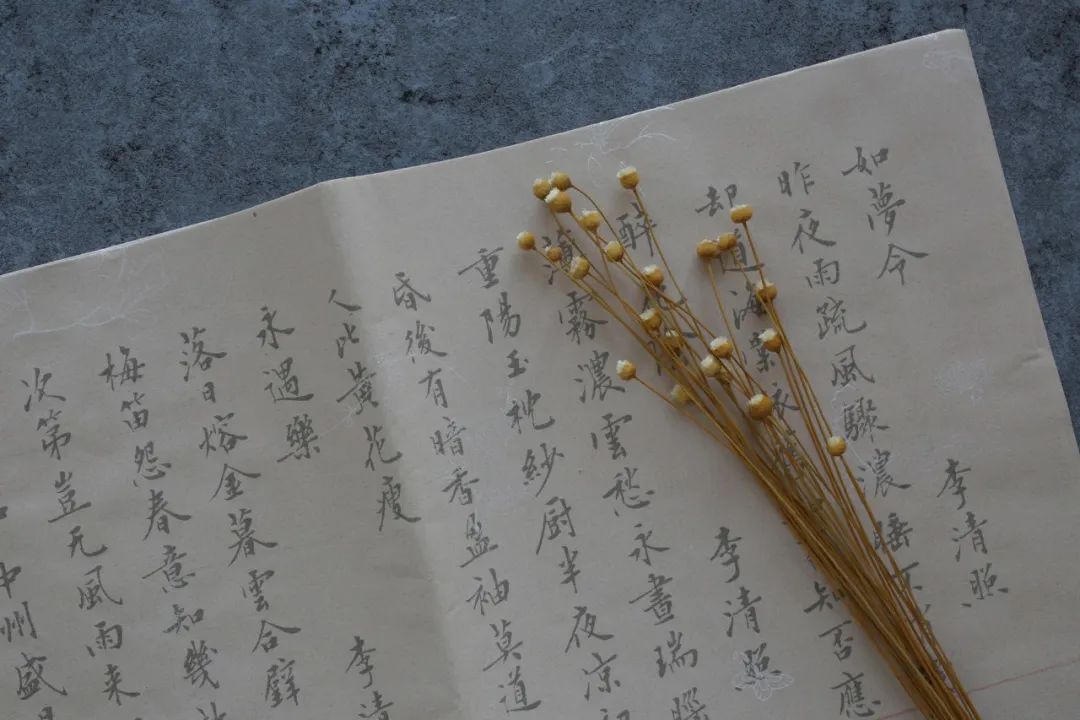 如夢令
李清照
昨夜雨疏風驟濃睡不
却道海棠依
知否應
醉花
李清照
薄霧濃雲愁永晝瑞腦
重陽玉枕紗厨半夜涼初
昏後有暗香盈袖莫道
人比黄花瘦
永遇樂
李清
落日熔金暮雲合璧
梅笛怨春意知幾許
次第豈无風雨来
中州盛日